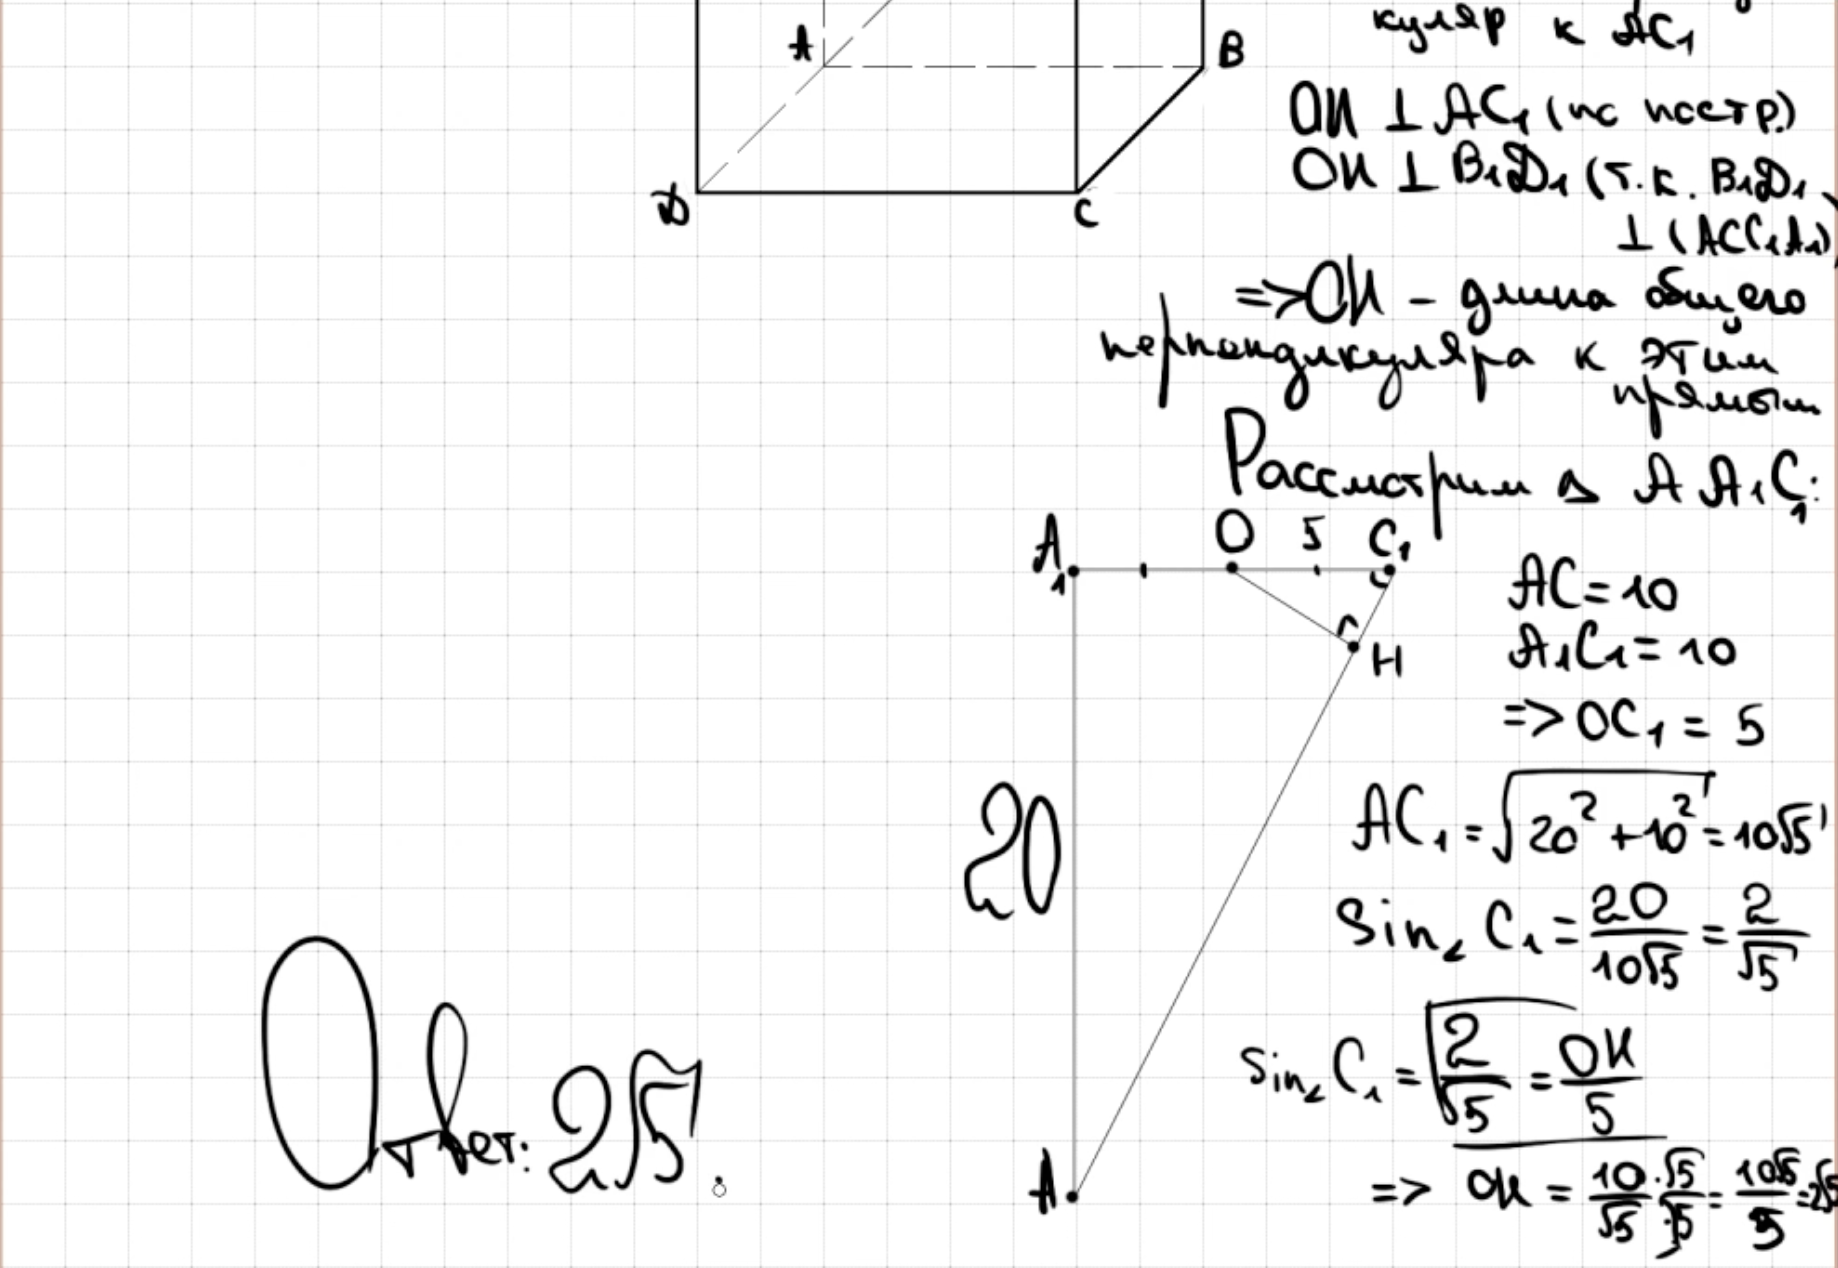 куляр к AC₁
A
B
OH ⊥ AC₁ (по постр.)
OH ⊥ B₁D₁ (т.к. B₁D₁
⊥ (ACC₁A₁)
D
C
=> OH - длина общего
перпендикуляра к этим
прямым
Рассмотрим △ AA₁C₁:
A₁ O 5 C₁
H
20
A
AC = 10
A₁C₁ = 10
=> OC₁ = 5
AC₁ = √(20² + 10²) = 10√5
Sin∠C₁ = 20/10√5 = 2/√5
Sin∠C₁ = 2/√5 = OH/5
=> OH = 10/√5 · √5/√5 = 10√5/5 = 2√5
Ответ: 2√5.